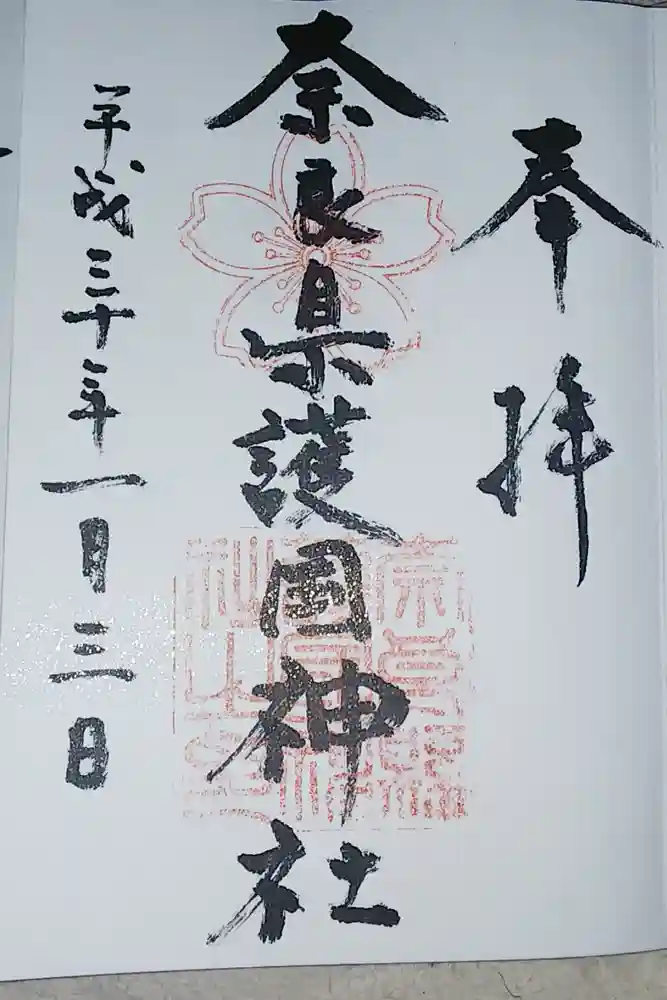 奉拝
奈良県護國神社
平成三十年一月三日